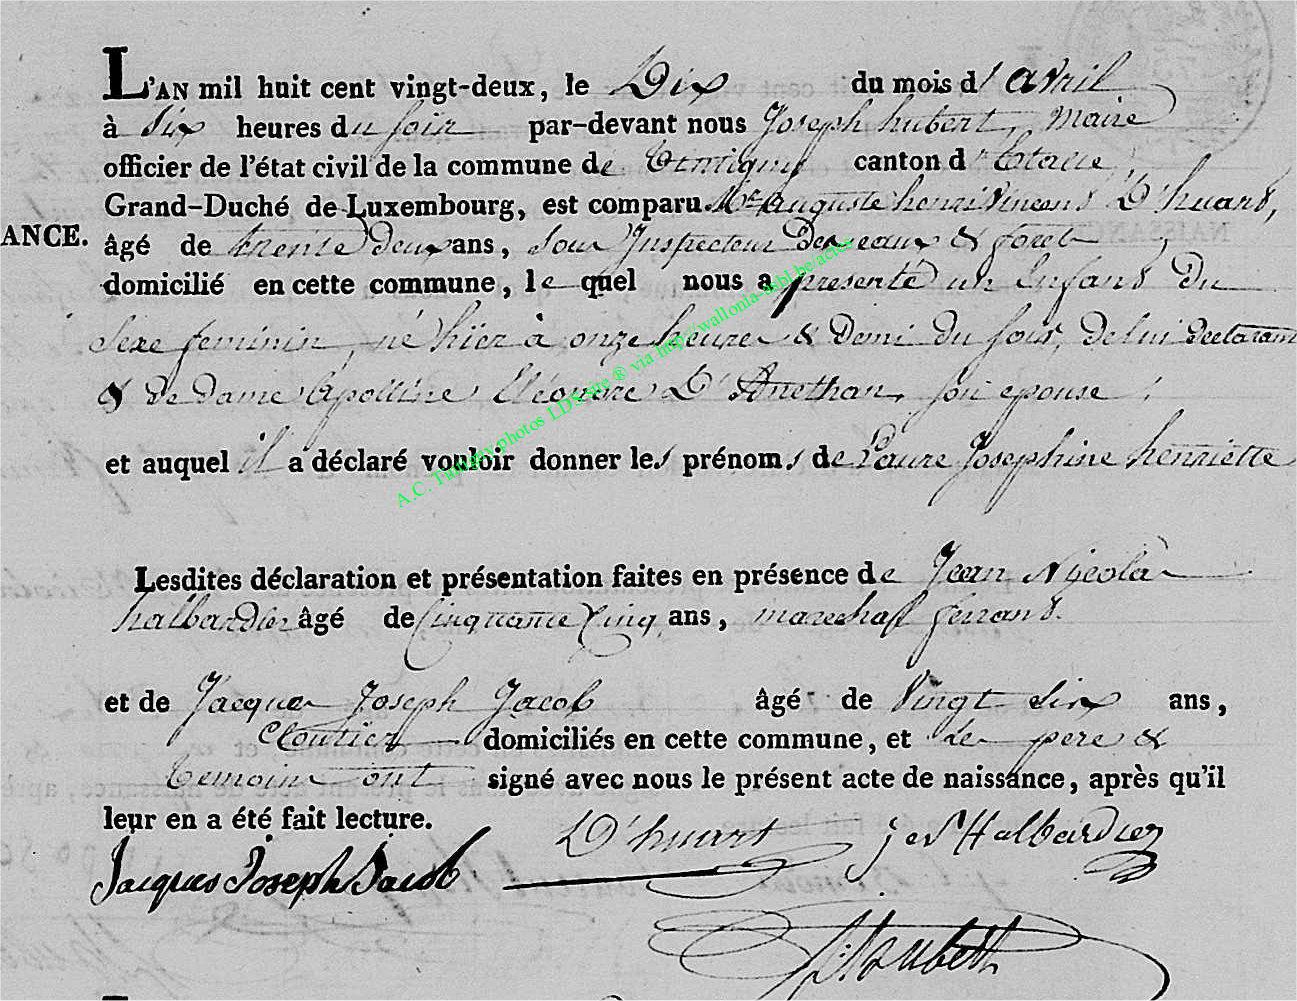 L'AN mil huit cent vingt-deux, le Dix du mois d'avril
à Six heures du soir par-devant nous Joseph hubert, Maire
officier de l'état civil de la commune de Tintigny canton d'Etalle
Grand-Duché de Luxembourg, est comparu Mr. Auguste henri Vincent D'huart,
ANCE.
âgé de trente deux ans, Sous Inspecteur Des eaux & forets
domicilié en cette commune, le quel nous a presenté un Enfant Du
Sexe feminin, né hier à onze heures & Demi du soir, de lui declarant
& de dame Apolline Eléonore D'Anethan, son epouse,
et auquel il a déclaré vouloir donner les prénoms de Laure Josephine henriette
A.C. Tintigny photos LDS site ® via http://wallonia-asbl.be/actes
Lesdites déclaration et présentation faites en présence de Jean Nicolas
halbardier âgé de Cinquante Cinq ans, marechal ferrant.
et de Jacques Joseph Jacob âgé de Vingt Six ans,
Cloutier domiciliés en cette commune, et Le pere &
temoins ont signé avec nous le présent acte de naissance, après qu'il
leur en a été fait lecture.
D'huart
Halbardier
Jacques Joseph Jacob